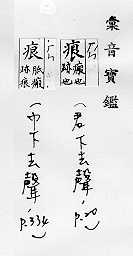 彙音寶鑑
痕
瘢也
跡也
(君下去聲 p.20)
痕
脈瘢
跡痕
(巾下去聲 p.334)